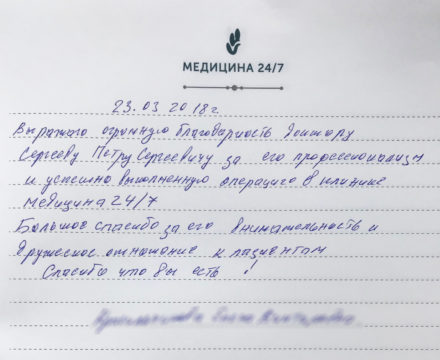 МЕДИЦИНА 24/7
23.03 2018г.
Выражаю огромную благодарность доктору
Сергееву Петру Сергеевичу за его профессионализм
и успешно выполненную операцию в клинике
Медицина 24/7
Большое спасибо за его внимательность и
дружеское отношение к пациентам
Спасибо что Вы есть !